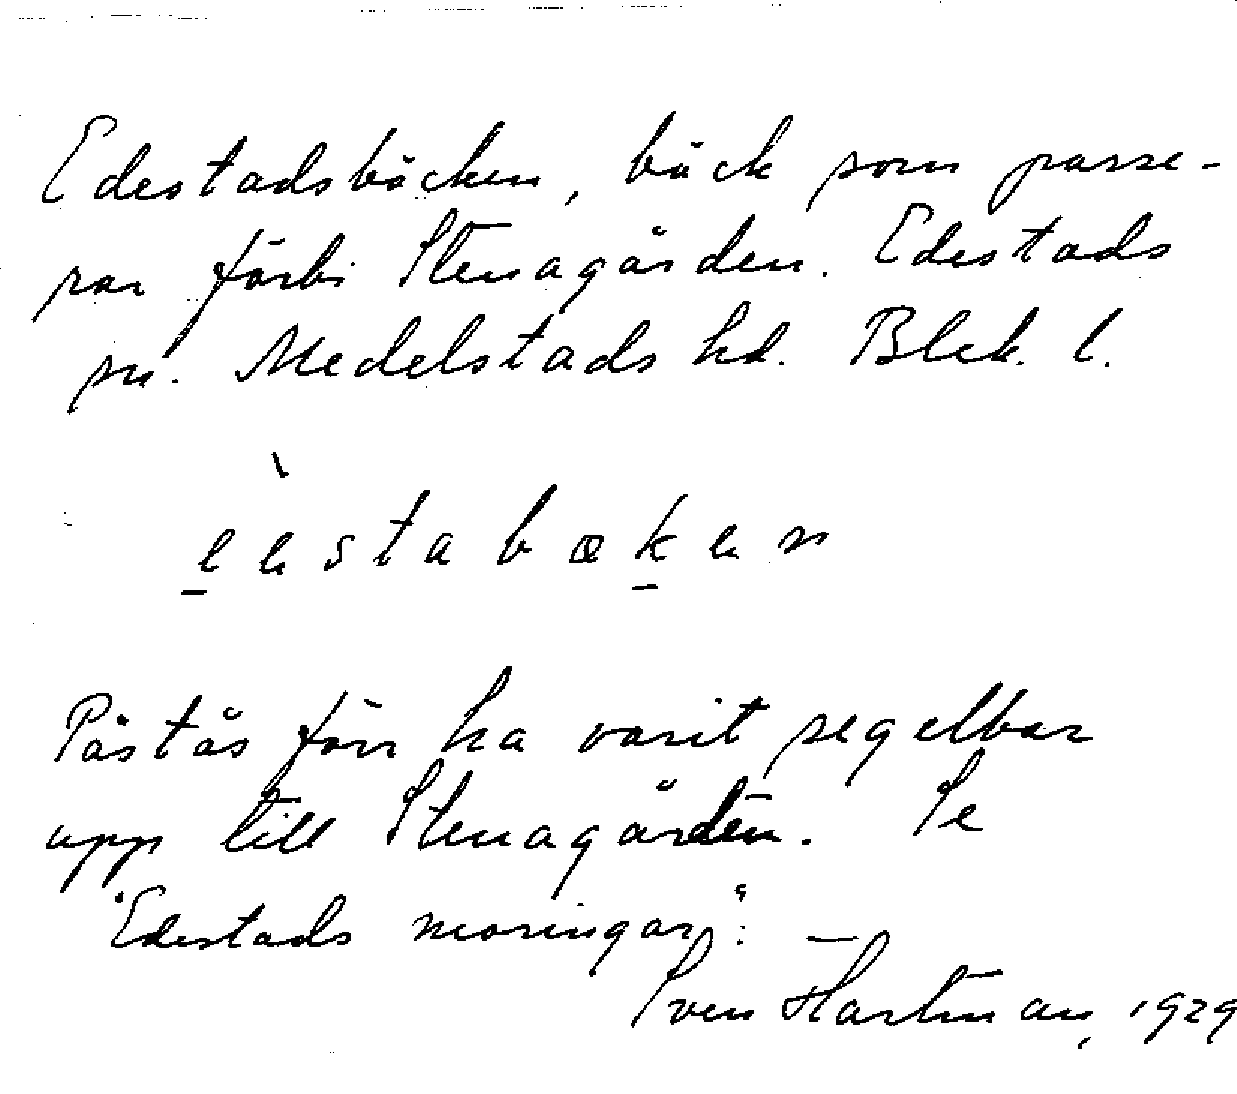 Edestadsbäcken, bäck som passe-
rar förbi Stenagården. Edestads
sn. Medelstads hd. Blek. l.
èestabækен
Påstås förr ha varit segelbar
upp till Stenagården. Se
"Edestads moringar":
Sven Hartman, 1929